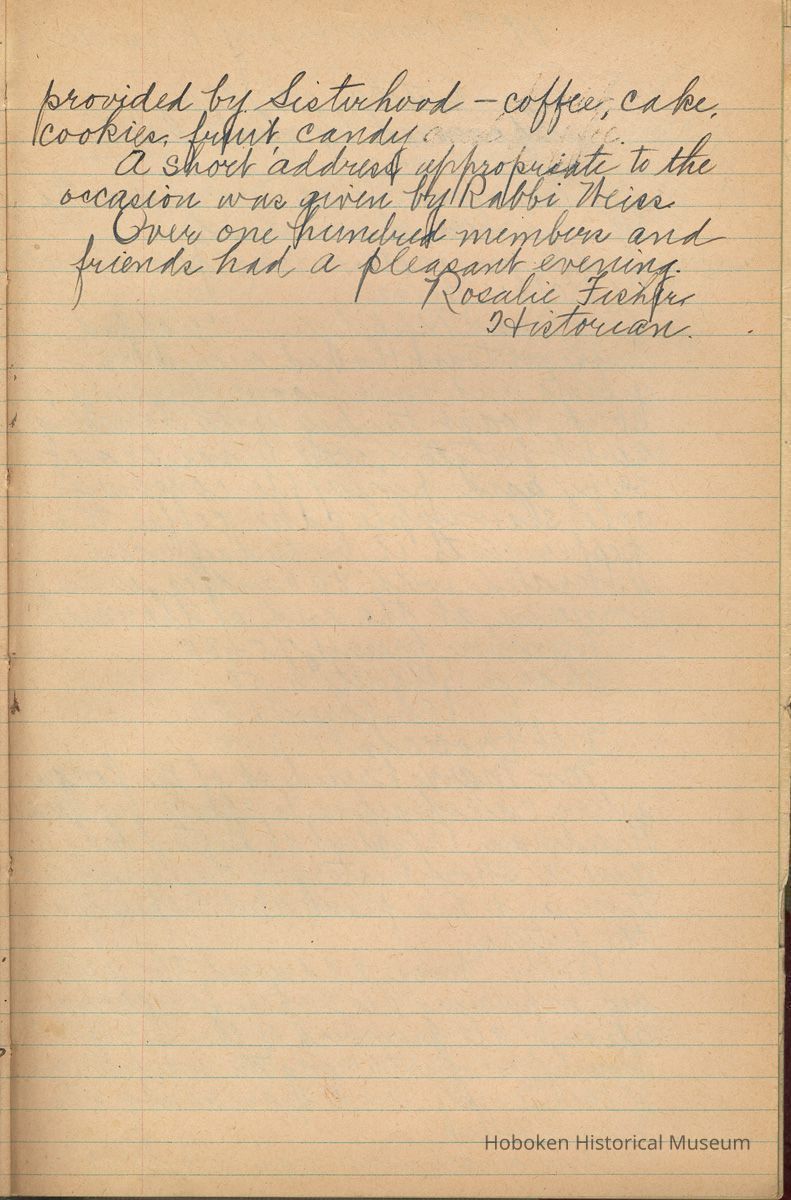 provided by Sisterhood – coffee, cake,
cookies, fruit, candy
A short address appropriate to the
occasion was given by Rabbi Weiss.
Over one hundred members and
friends had a pleasant evening.
Rosalie Fisher
Historian.
Hoboken Historical Museum